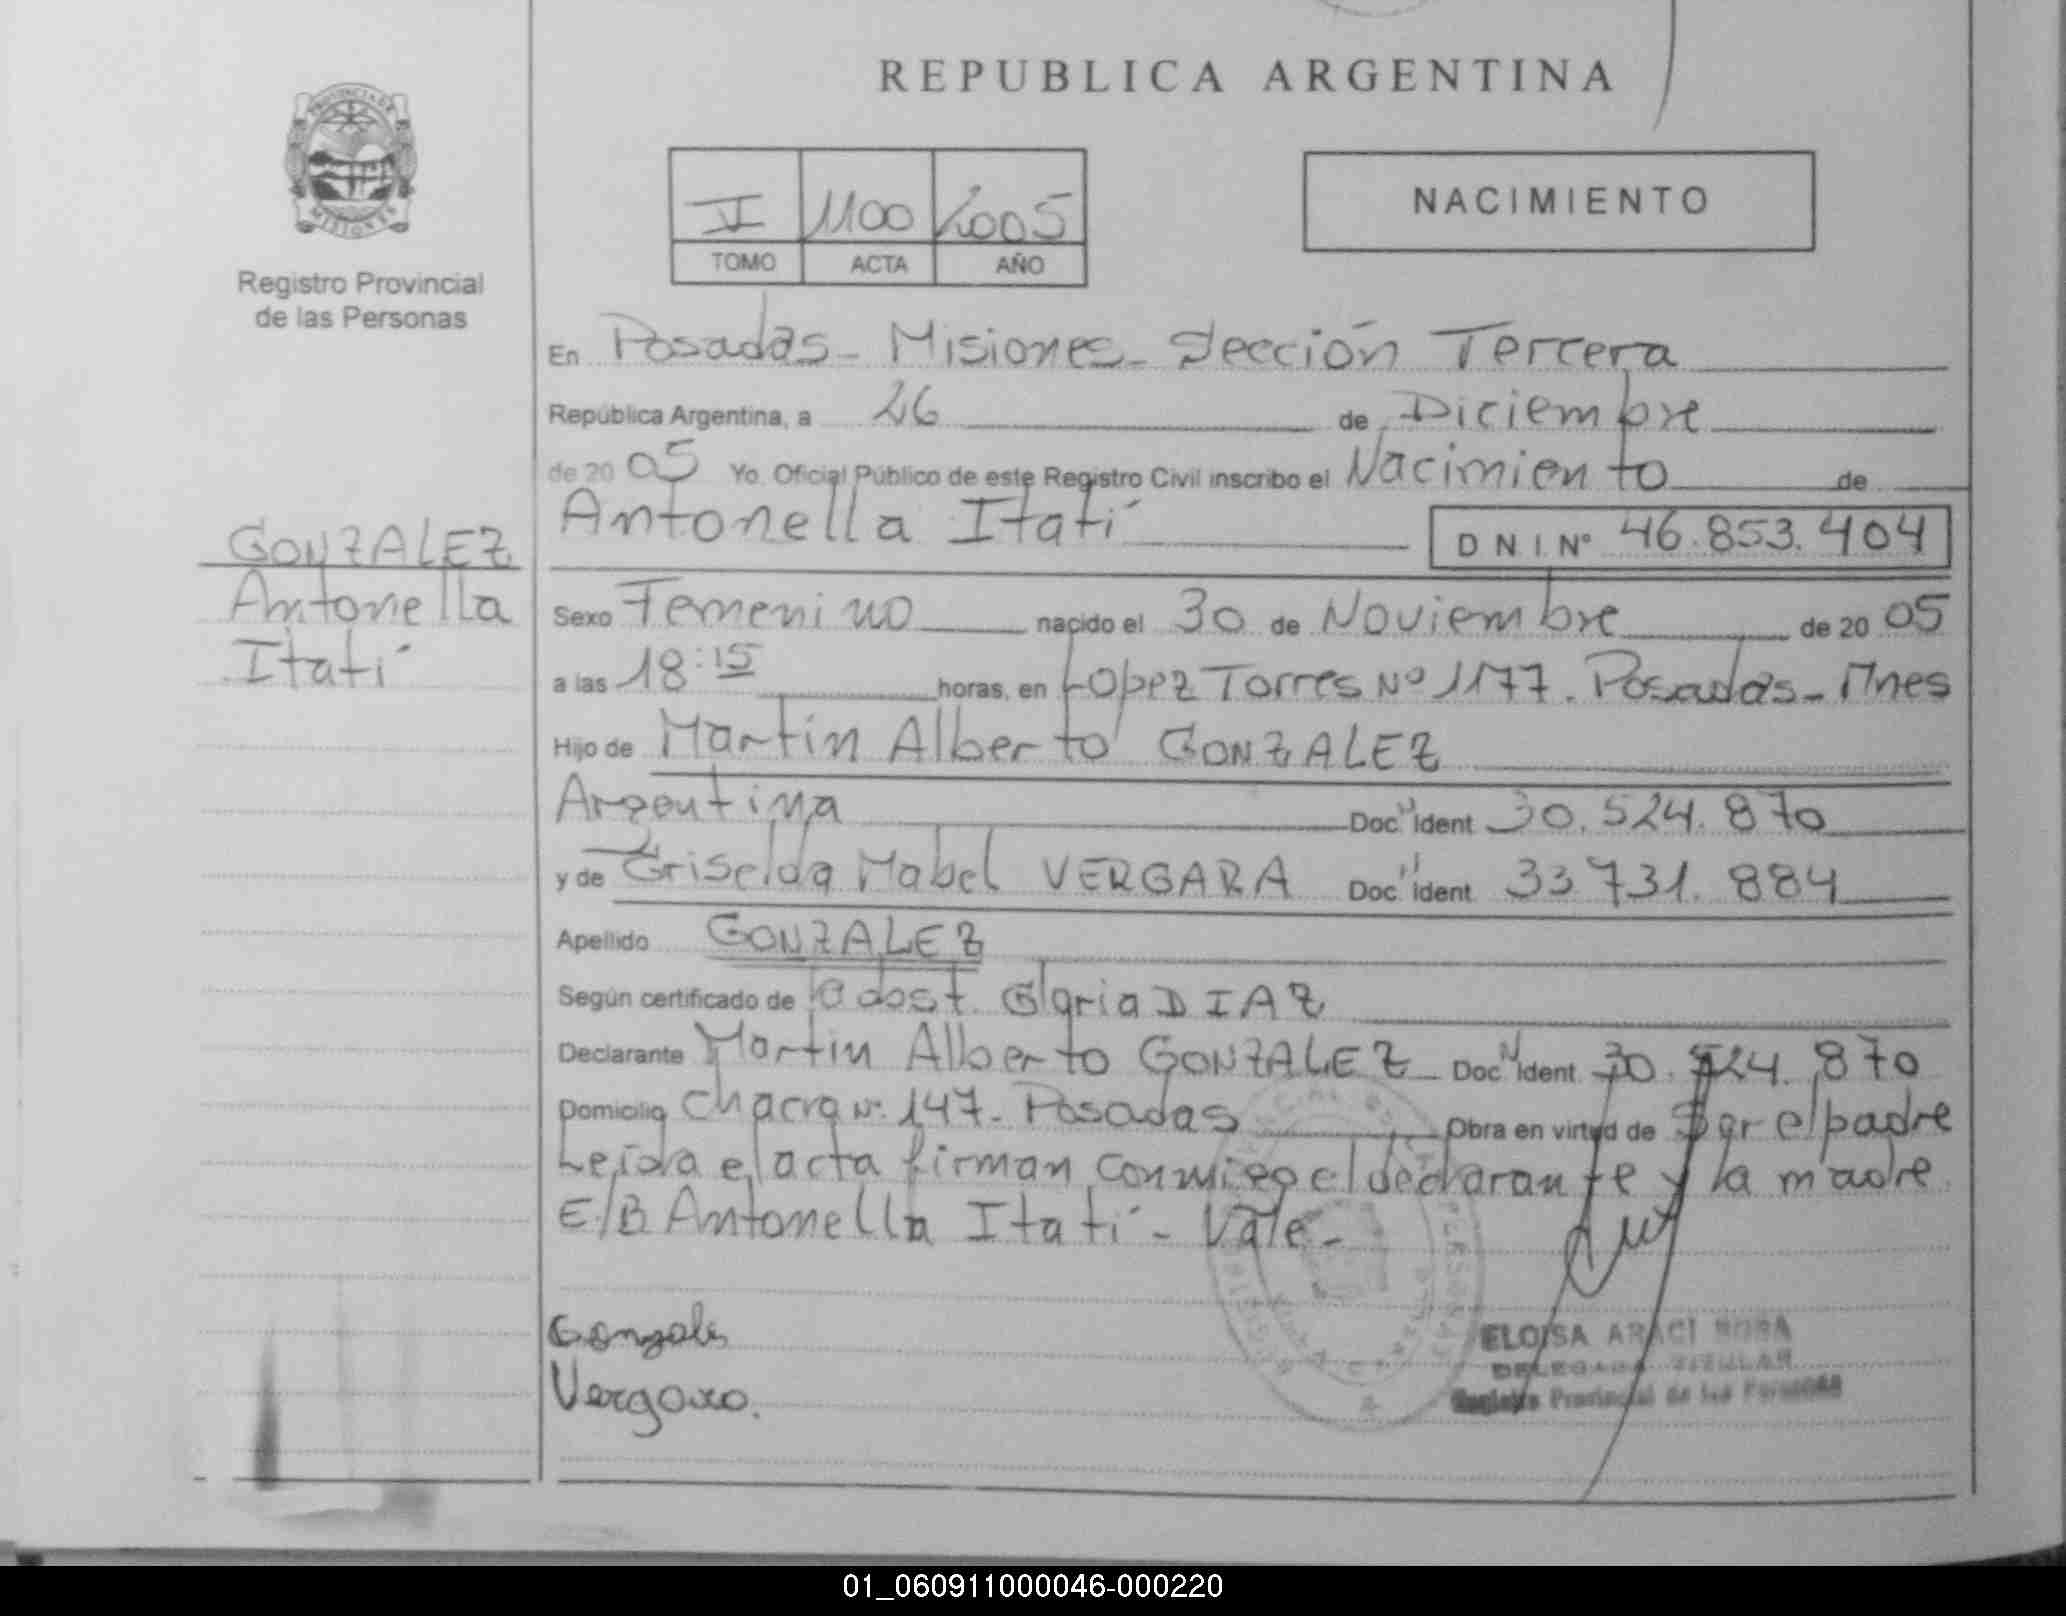 REPUBLICA ARGENTINA
PROVINCIA DE
MISIONES
Registro Provincial
de las Personas
1100 2005
TOMO ACTA AÑO
NACIMIENTO
En Posadas - Misiones - Sección Tercera
República Argentina, a 26 de Diciembre
de 2005 Yo Oficial Público de este Registro Civil inscribo el Nacimiento de
Antonella Itatí DNI Nº 46.853.404
GONZALEZ
Antonella
Itatí
Sexo Femenino nacido el 30 de Noviembre de 2005
a las 18:15 horas, en Lopez Torres Nº 1177. Posadas - Mnes
Hijo de Martin Alberto GONZALEZ
Argentina Doc Ident 30.524.870
y de Griselda Mabel VERGARA Doc Ident 33.731.884
Apellido GONZALEZ
Según certificado de la obst. Gloria DIAZ
Declarante Martin Alberto GONZALEZ Doc Ident 30.524.870
Domicilio Chacra Nº 147 - Posadas Obra en virtud de Ser el padre
Leída el acta firman conmigo el declarante y la madre
E/B Antonella Itatí - Vale -
Gonzalez
Vergara.
ELOISA ARACI
DELEGADA TITULAR
Registro Provincial de las Personas
01_060911000046-000220